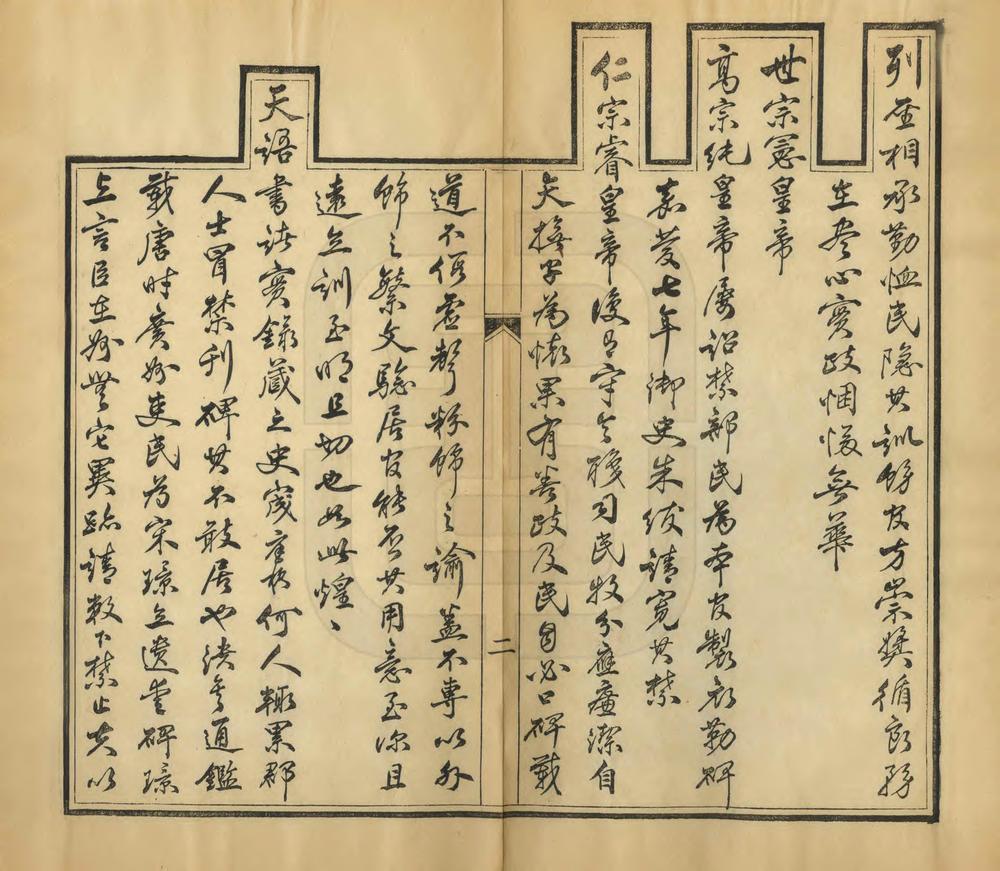 列聖相承勤恤民隱其訓飭官方崇獎循良務
在盡心實政悃愊無華
世宗憲皇帝
高宗純皇帝屢詔禁部民為本官製衣勒碑
嘉慶七年御史朱紱請寬其禁
仁宗睿皇帝復以守令職司民牧分應廉潔自
矢撫字為懷果有善政及民自必口碑載
二
道不假虛聲粉飾之諭蓋不專以外
飾之繁文驗居官能否其用意至深且
遠立訓至明且切也如此煌〻
天語書諸實錄藏之史宬審敬何人輒累郡
人士冒禁刊碑其不敢居也決矣通鑑
載唐時廣州吏民為宋璟立遺愛碑璟
上言臣在州無它異跡請敕下禁止夫以